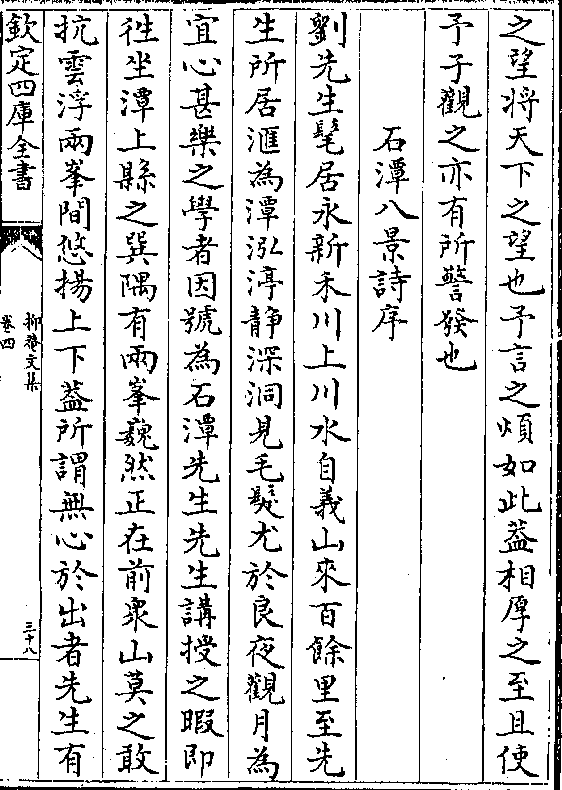 之望将天下之望也予言之煩如此葢相厚之至且使
予子觀之亦有所警發也
石潭八景詩序
劉先生髦居永新禾川上川水自義山來百餘里至先
生所居滙為潭泓渟靜深洞見毛髮尤於良夜觀月為
宜心甚樂之學者因號為石潭先生先生講授之暇即
徃坐潭上縣之巽隅有兩峯巍然正在前衆山莫之敢
抗雲浮兩峯間悠揚上下葢所謂無心於出者先生有
欽定四庫全書
抑菴文集
卷四
三十八